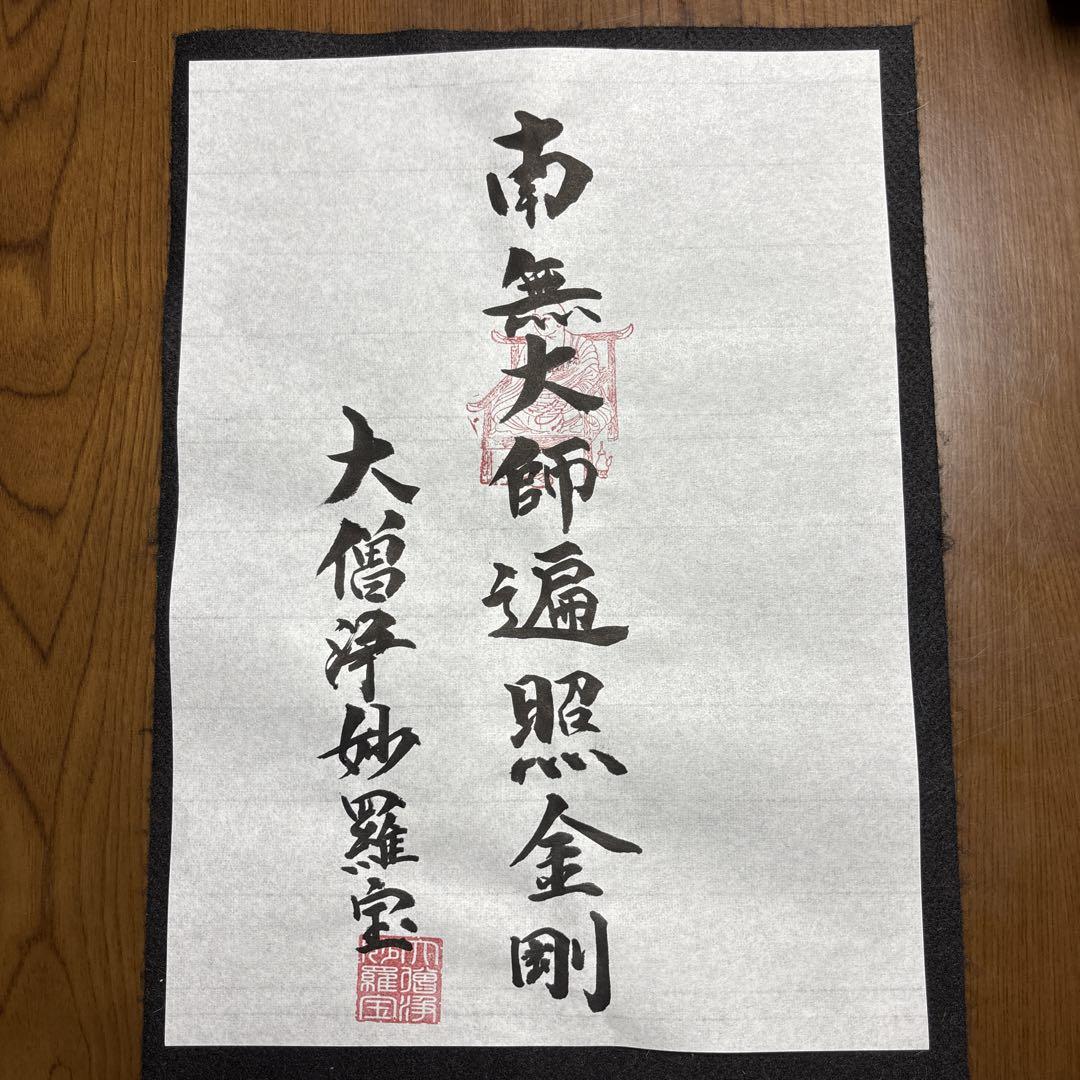 南無大師遍照金剛
大僧浄妙羅宝
大僧浄
妙羅宝